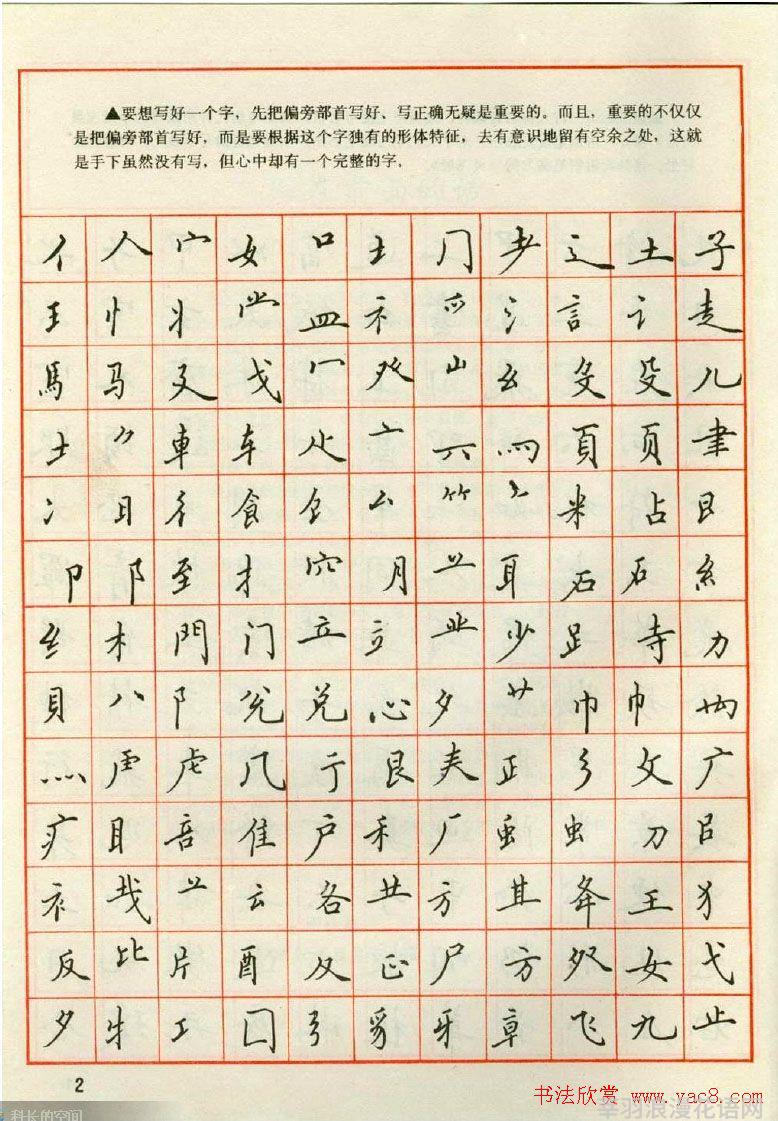 ▲要想写好一个字，先把偏旁部首写好、写正确无疑是重要的。而且，重要的不仅仅
是把偏旁部首写好，而是要根据这个字独有的形体特征，去有意识地留有空余之处，这就
是手下虽然没有写，但心中却有一个完整的字．
亻 人 宀 女 口 土 冂 耂 辶 土 子
王 忄 丬 龸 皿 礻 爫 氵 言 讠 走
馬 马 廴 戈 冖 癶 山 幺 殳 殳 儿
士 車 车 亠 六 罒 頁 页 聿
冫 日 彳 食 𠆢 竹 米 占 日
卩 阝 至 扌 穴 月 䒑 耳 石 石 糹
纟 木 門 门 立 立 业 少 足 寺 力
貝 八 阝 兑 兑 心 夕 艹 巾 巾
灬 虍 虍 几 亍 艮 夫 正 彡 攵 广
疒 目 音 隹 户 禾 厂 虫 虫 刀 吕
衤 䒑 云 各 龷 方 其 夅 王 犭
反 比 片 酉 及 正 尸 方 女 弋
夕 牜 工 囗 弓 豸 牙 章 飞 九 止
2
书法欣赏 www.yac8.com
科长的空间
羽浪漫花语网